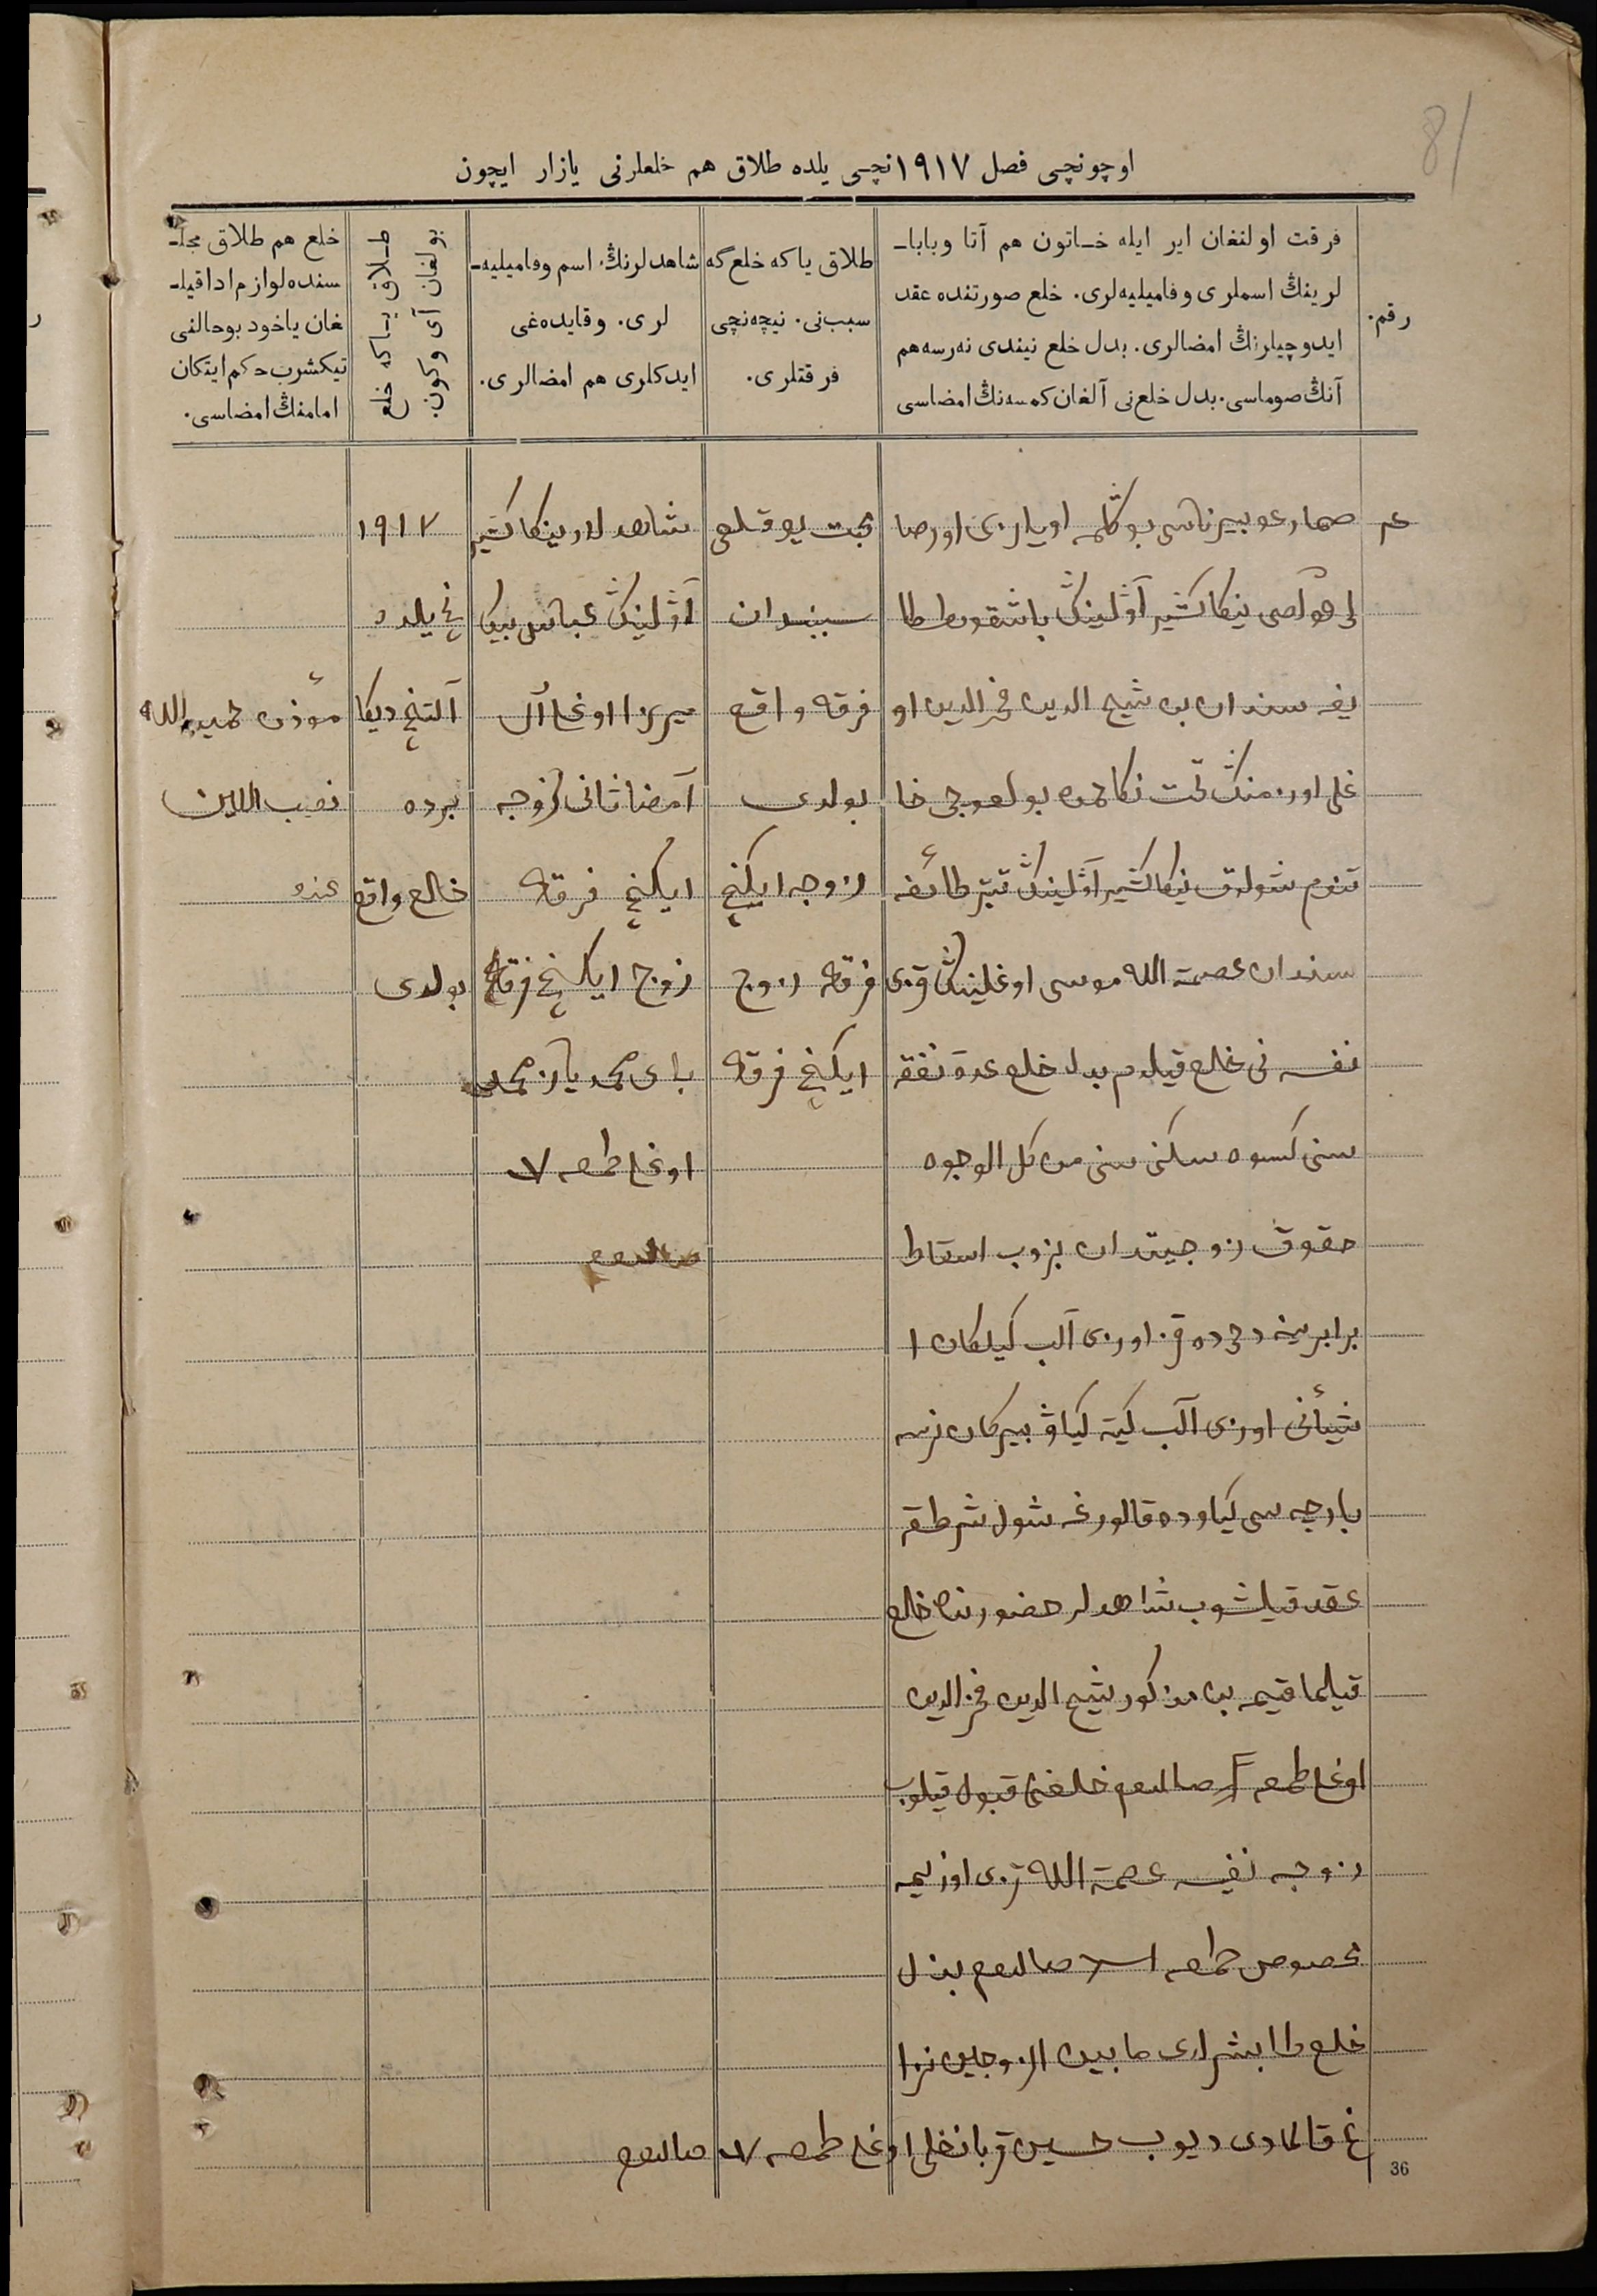 81
اوچونچی فصل ١٩١٧نچی یلده طلاق هم خلعلرنی یازار ایچون
رقم.
فرقت اولنغان ایر ایله خاتون هم آتا وبابا-
لرینڭ اسملری وفامیلیه‌لری. خلع صورتنده عقد
ایدوچیلرنڭ امضالری. بدل خلع نیندی نه‌رسه هم
آنڭ صوماسی. بدل خلع‌نی آلغان کمسه‌نڭ امضاسی
طلاق یاکه خلع گه
سبب‌نی. نیچه‌نچی
فرقتلری.
شاهدلرنڭ اسم وفامیلیه-
لری. وقایده‌غی
ایدکلری هم امضالری.
طلاق یاکه خلع
بولغان آی وکون.
خلع هم طلاق مجلـ-
سنده لوازم ادا قیلـ-
غان یاخود بو حالنی
تیکشرب حکم ایتکان
امامنڭ امضاسی.
لی هم ینکاکشیر آولینڭ باشقورط طا
یفه سندان بن شیخ الدین فخرالدین او
غلی اوزمنڭ تحت نکاحمده بولعوچی خا
تنم شولوق ینکاکشیر آولینڭ تبتر طائفه
سندان عصمة الله موسی اوغلینڭ قزی
نفسه نی خلع قیلدم بدل خلع عدة نفقه
سنی کسوه سکنی سنی من کل الوجوه
حقوق زوجیتدان بزوب اسقاط
برابرینه
شیأنی اوزی آلب کیته کیاو بیرکان نرسه
بارچه سی کیاوده قالورغه شول شرطقه
عقد قیلشوب شاهدلر حضورنده خلع
قیلماقیمه بن مذکور شیخ الدین فخرالدین
اوغلی طمعه صالدم خلعنی قبول قیلوب
زوجه نفیسه عصمة الله قزی اوزیمه
مخصوص طمعه صالدم بدل
خلع مابین الزوجین نزا
غ قالمادی دیوب حسین قربانغلی اوغلی طمعه صالدم
محبت یوقلغی
سببندان
فرقه واقع
بولدی
زوجه ایکنچی
فرقه زوج
ایکنچی فرقه
شاهدلار ینکاکشیر
آولینڭ عباس بیک
میرزا اوغلی آل
امضا ثانی زوجه
ایکنچی فرقه
زوج ایکنچی فرقه
بای محمد یار محمد
اوغلی طمعه
صالدم
١٩١٧
نچی یلده
آلتنچی دیکا
برده
خلع واقع
بولدی
مؤذن حمید الله
نصیب الدین
عنده
36